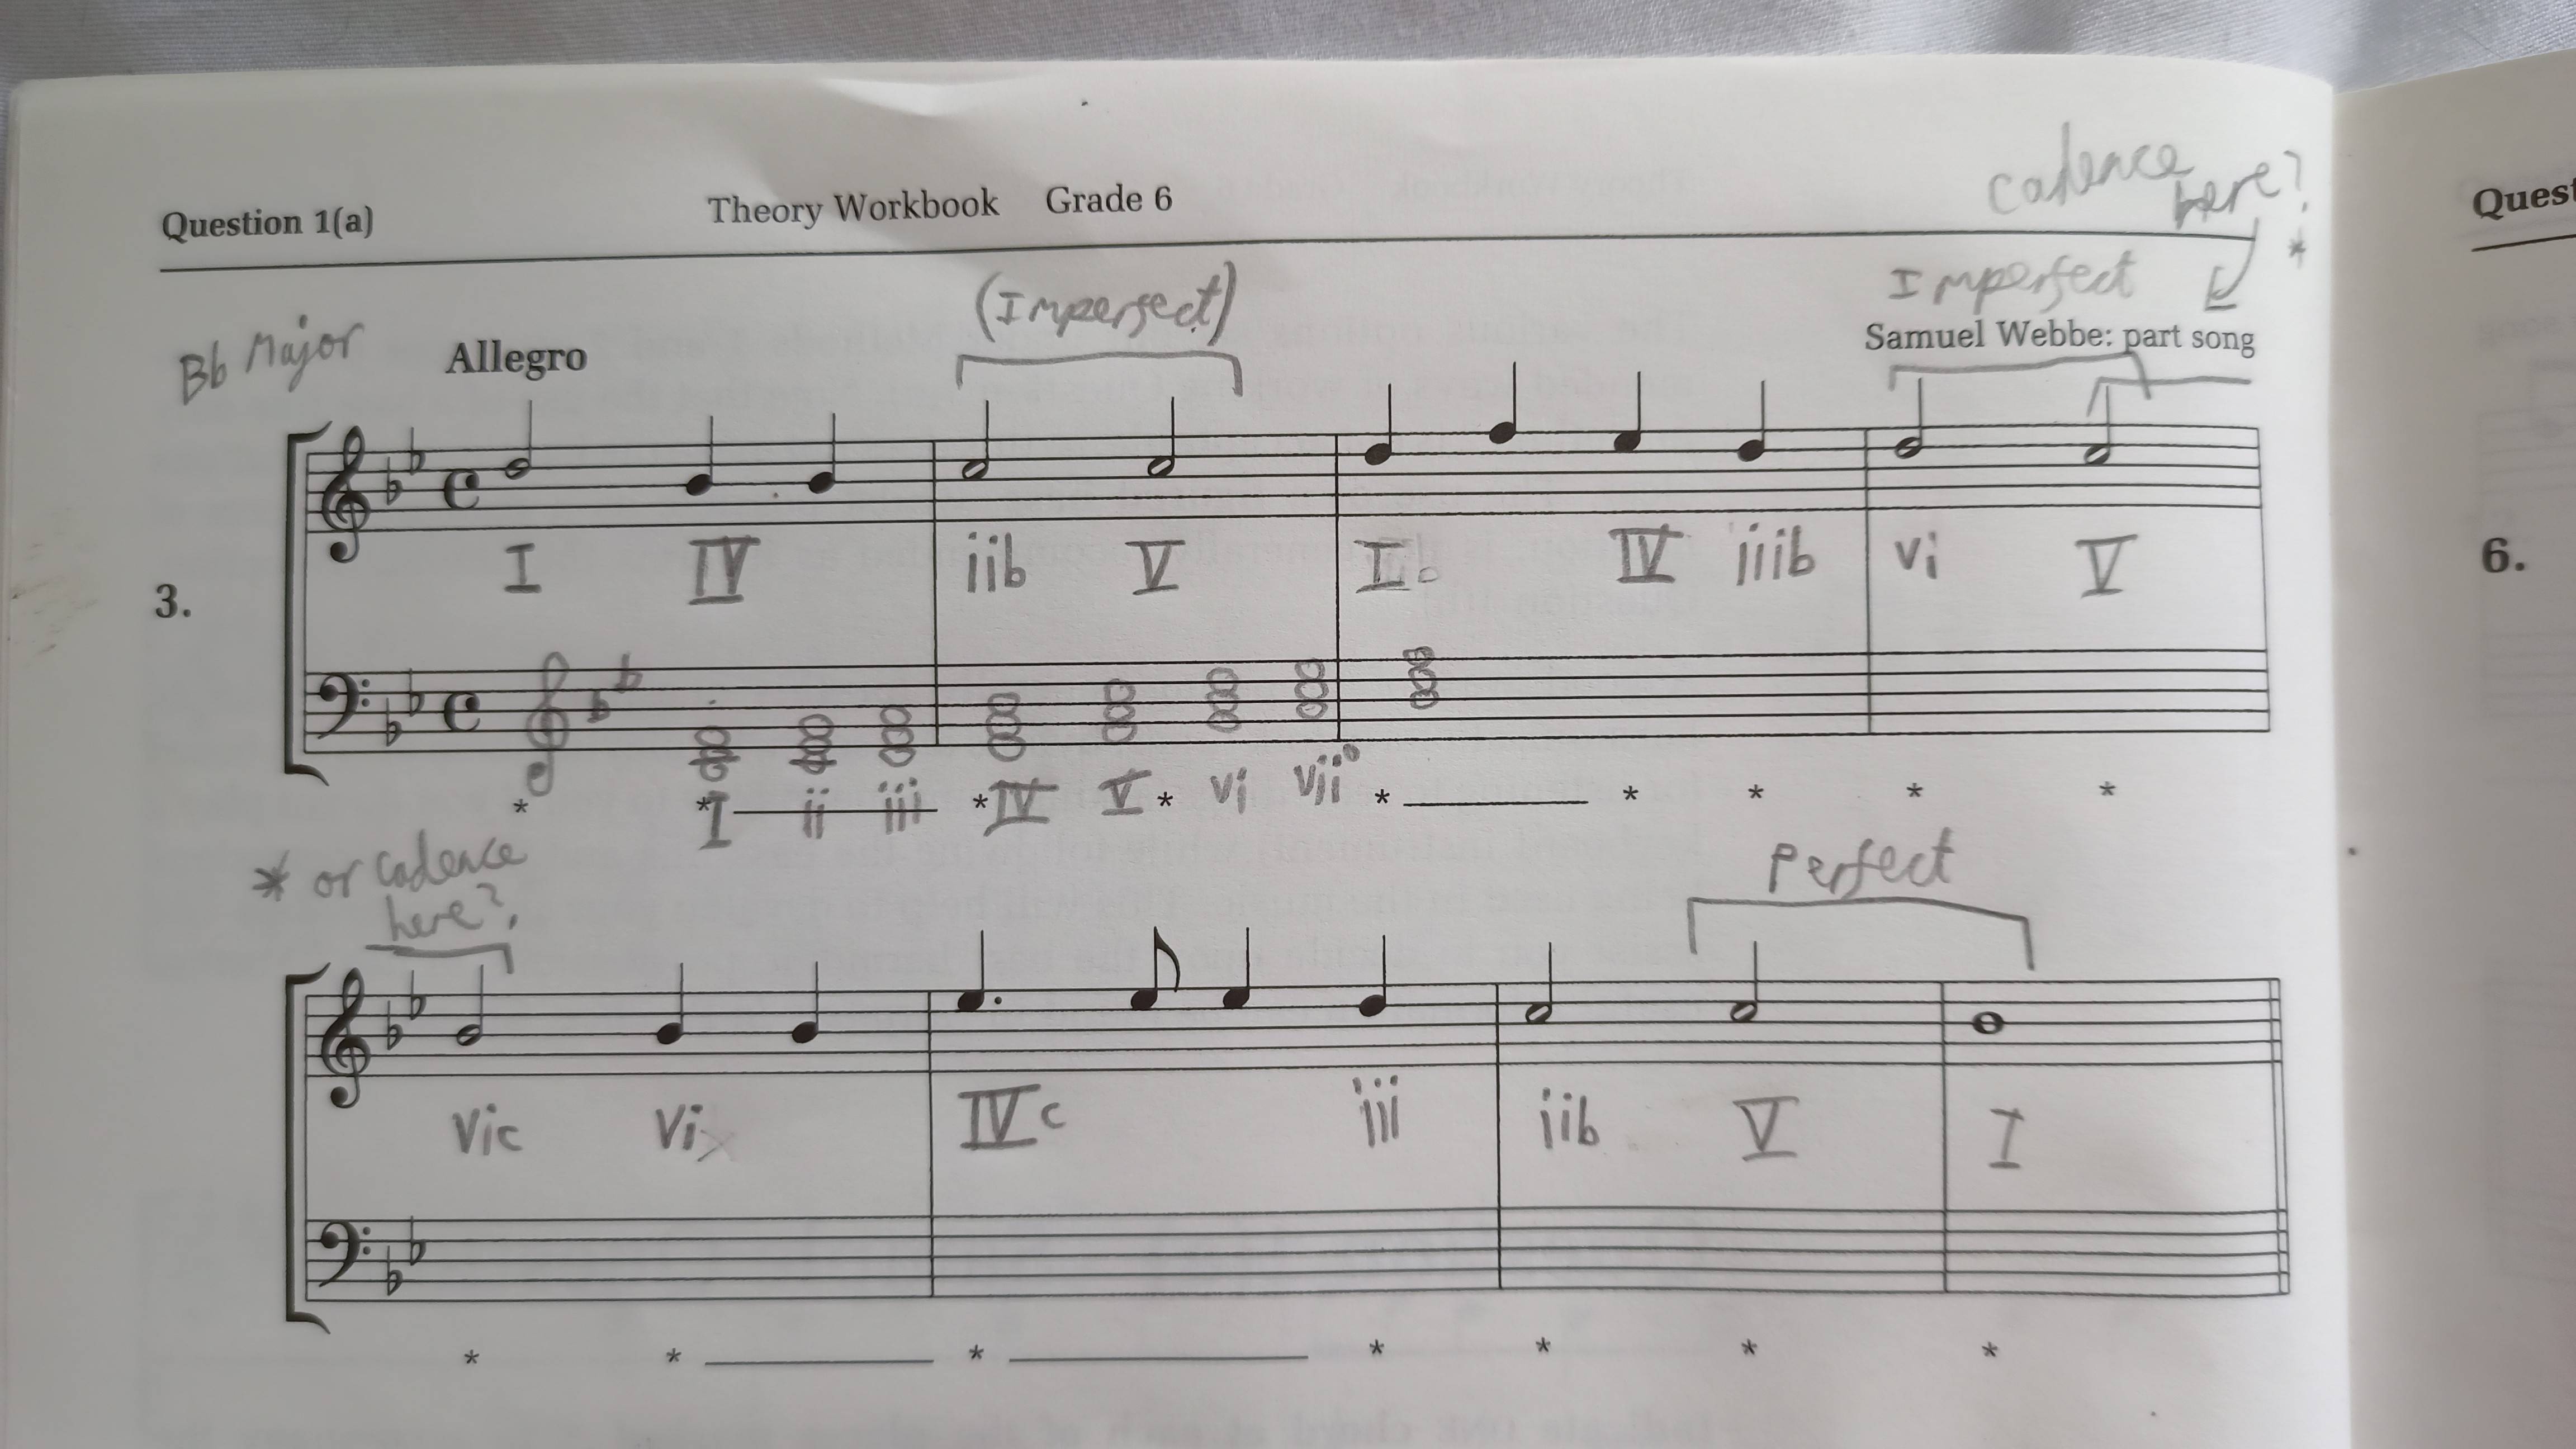 cadence
here?
*
Question 1(a) Theory Workbook Grade 6
Quest
(Imperfect)
Imperfect
Bb Major
Allegro
Samuel Webbe: part song
3.
I IV iib V Ib IV iiib vi V
6.
* * * * * * * * *
I ii iii IV V vi vii°
* or cadence
here?
Perfect
vic vi IVc iii iib V I
* * * * * * *